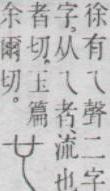 徐有乁聲二字
字。从乁者流也
者切。玉篇
余爾切。